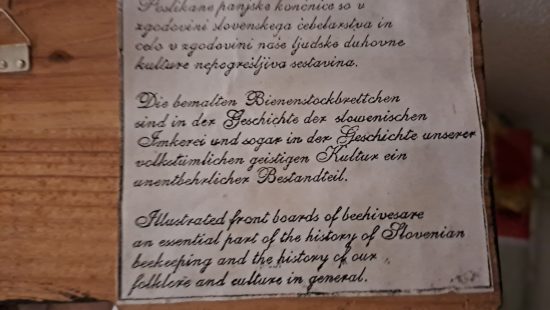 Poslikane panjske končnice so v
zgodovini slovenskega čebelarstva in
celo v zgodovini naše ljudske duhovne
kulture nepogrešljiva sestavina.
Die bemalten Bienenstockbrettchen
sind in der Geschichte der slowenischen
Imkerei und sogar in der Geschichte unserer
volkstümlichen geistigen Kultur ein
unentbehrlicher Bestandteil.
Illustrated front boards of beehivesare
an essential part of the history of Slovenian
beekeeping and the history of our
folklore and culture in general.